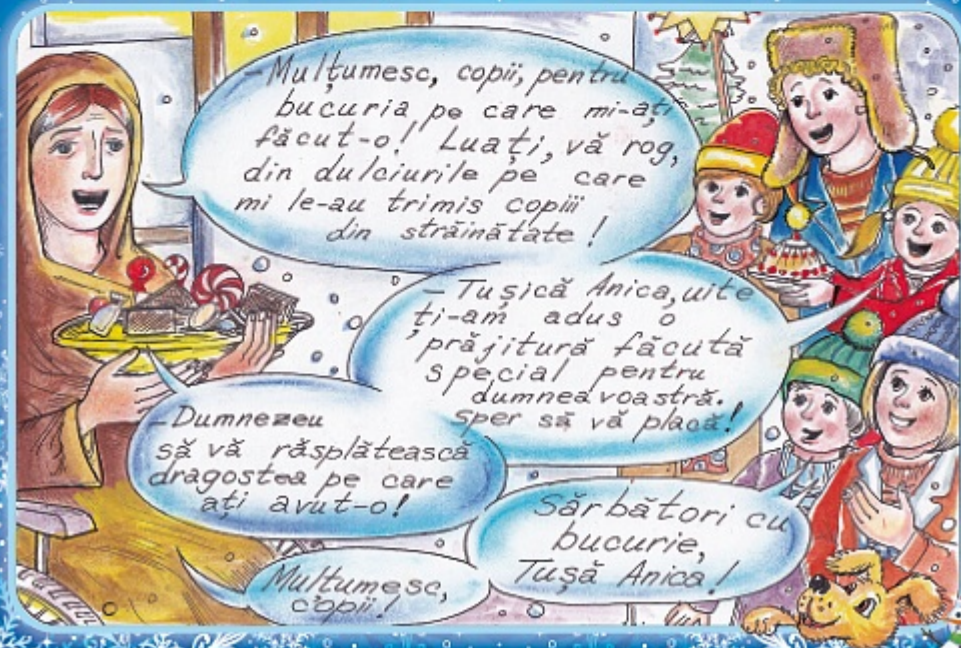 – Mulțumesc, copii, pentru
bucuria pe care mi-ați
făcut-o! Luați, vă rog,
din dulciurile pe care
mi le-au trimis copiii
din străinătate!
– Tușică Anica, uite
ți-am adus o
prăjitură făcută
special pentru
dumneavoastră.
Sper să vă placă!
– Dumnezeu
să vă răsplătească
dragostea pe care
ați avut-o!
Sărbători cu
bucurie,
Tușă Anica!
Mulțumesc,
copii!